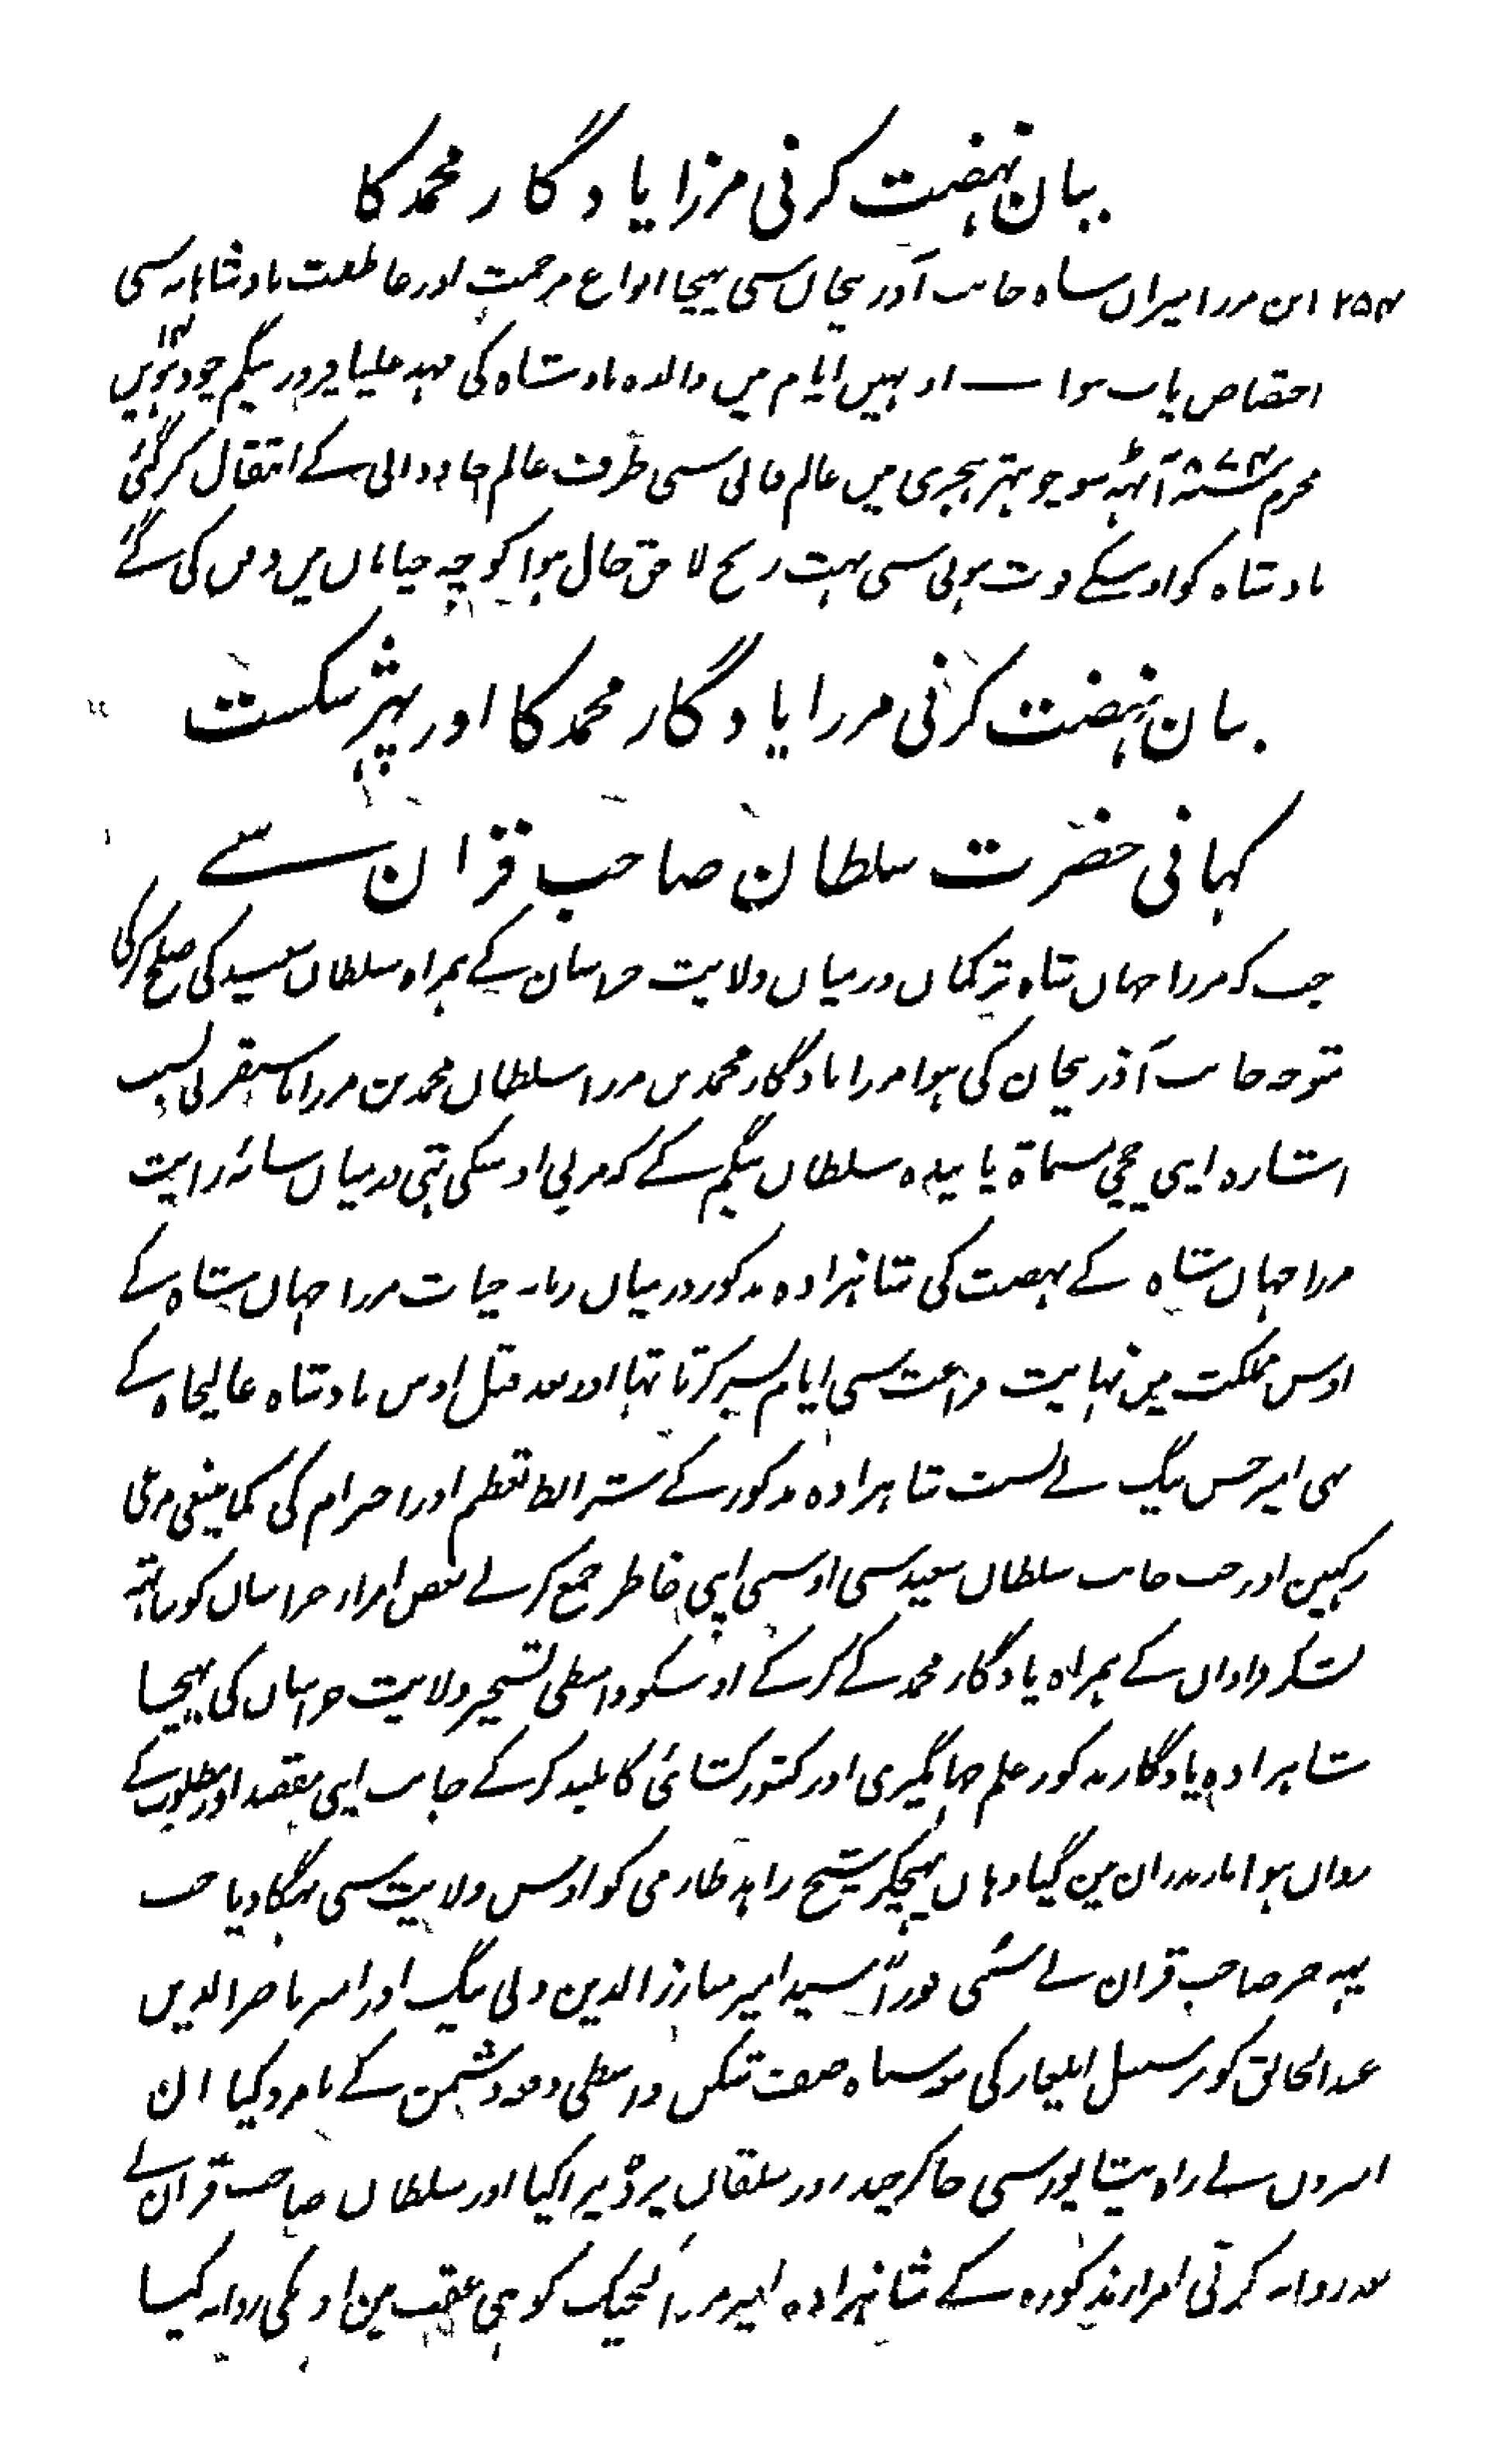 بیان نہضت کرنی مرزا یادگار محمد کا
۲۵۴ ابن مرزا میران شاہ جانب آذربیجان سی بہیجا انواع مرحمت اور عاطفت بادشاہانہ سی
اختصاص یاب ہوا — اونہیں ایام میں والدہ بادشاہ کی مہد علیا فیروز بیگم چودہویں ۱۴
محرم ۸۷۴ سنہ آٹہہ سو چوہتر ہجری میں عالم فانی سی طرف عالم جاودانی کے انتقال کر گئی
بادشاہ کو اوسکے فوت ہونی سی بہت رنج لاحق حال ہوا کوچہ خیابان میں دفن کی گئے
بیان نہضت کرنی مرزا یادگار محمد کا اور پہر شکست
کہانی حضرت سلطان صاحب قران سے
جب کہ مرزا جہان شاہ ترکمان درمیان ولایت خراسان کے ہمراہ سلطان سعید کی صلح کرکی
متوجہ جانب آذربیجان کی ہوا مرزا یادگار محمد بن مرزا سلطان محمد بن مرزا بایسنقر نی بسبب
اشارہ اپنی چچی مسماة پایندہ سلطان بیگم کے کہ مربی اوسکی تہی درمیان سایۂ رایت
مرزا جہان شاہ کے نہضت کی شاہزادہ مذکور درمیان زمانہ حیات مرزا جہان شاہ کے
اوس مملکت میں نہایت فراغت سی ایام بسر کرتا تہا اور بعد قتل اوس بادشاہ عالیجاہ کے
بہی امیر حسن بیگ نے نسبت شاہزادہ مذکور کے شرائط تعظیم اور احترام کی کما ینبغی مرعی
رکہیں اور جب جانب سلطان سعید سی اوسی اپنی خاطر جمع کرلے بعض امراء خراسان کو ساتہہ
لشکر فراوان کے ہمراہ یادگار محمد کے کرکے اوسکو واسطی تسخیر ولایت خراسان کی بہیجا
شاہزادہ یادگار مذکور علم جہانگیری اور کشور کشائی کا بلند کرکے جانب اپنی مقصد اور مطلوب کے
روان ہوا مازندران مین گیا وہاں پہنچکر شیخ زاہد طارمی کو اوس ولایت سی بہگا دیا جب
یہہ خبر صاحب قران نے سنی فوراً سید امیر مبارز الدین ولی بیگ اور امیر ناصر الدین
عبد الخالق کو بر سبیل ایلغار کی مع سپاہ صف شکن واسطی دفع دشمن کے نامزد کیا ان
امیروں نے راہ نیشاپور سی جاکر چند روز سلقان پر ڈیرا کیا اور سلطان صاحب قران نے
بعد روانہ کرنی امراء مذکورہ کے شاہزادہ امیر مرزا کیجیک کو بہی عقب مین اونکی روانہ کیا